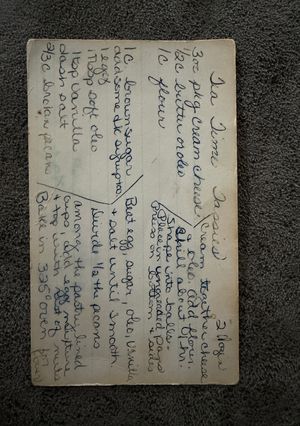 Tea Time Tassies
2 doz
3oz pkg cream cheese
1/2 c butter or oleo
1 c flour
Cream together cheese
& oleo. Add flour.
Chill about 1 hr.
Shape into balls -
Place in ungreased pans
Press on bottom & sides
1 c brown sugar
add some dk syrup too
1 egg
1 Tbsp soft oleo
1 tsp vanilla
dash salt
2/3 c broken pecans
Beat egg, sugar, oleo, vanilla
& salt until smooth
Divide 1/2 the pecans
among the pastry lined
cups; add egg mixture
& top with rest of nuts
Bake in 325° oven for